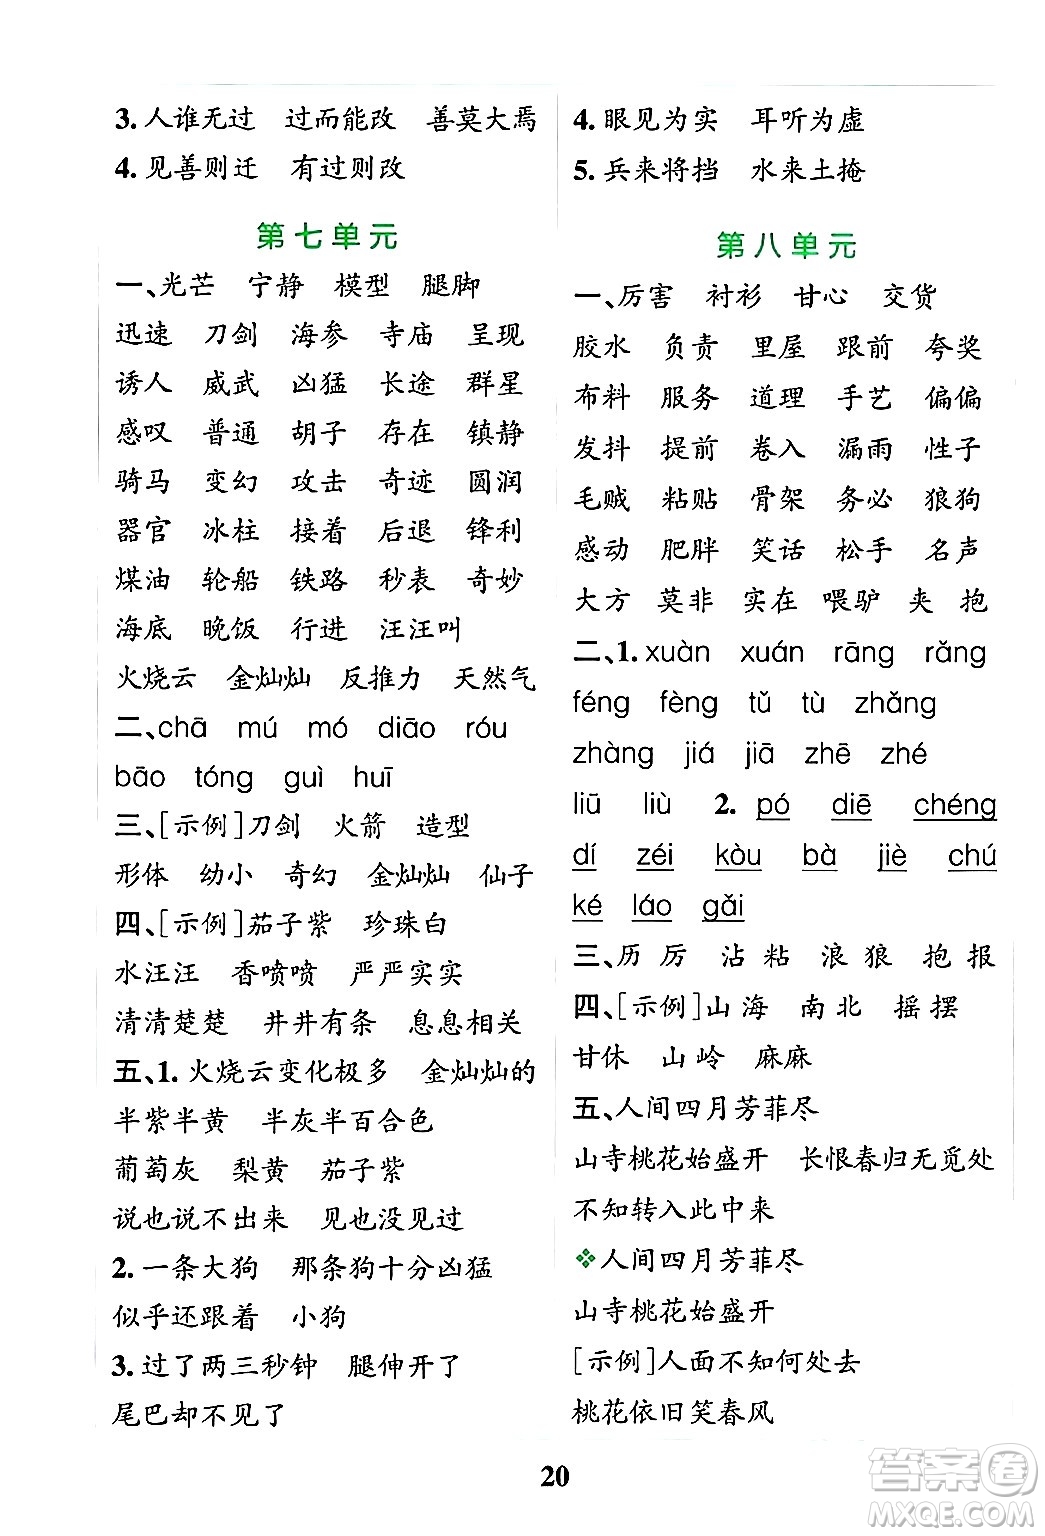 3. 人谁无过 过而能改 善莫大焉
4. 见善则迁 有过则改
第七单元
一、光芒 宁静 模型 腿脚
迅速 刀剑 海参 寺庙 呈现
诱人 威武 凶猛 长途 群星
感叹 普通 胡子 存在 镇静
骑马 变幻 攻击 奇迹 圆润
器官 冰柱 接着 后退 锋利
煤油 轮船 铁路 秒表 奇妙
海底 晚饭 行进 汪汪叫
火烧云 金灿灿 反推力 天然气
二、chā mú mó diāo róu
bāo tóng guì huī
三、[示例]刀剑 火箭 造型
形体 幼小 奇幻 金灿灿 仙子
四、[示例]茄子紫 珍珠白
水汪汪 香喷喷 严严实实
清清楚楚 井井有条 息息相关
五、1. 火烧云变化极多 金灿灿的
半紫半黄 半灰半百合色
葡萄灰 梨黄 茄子紫
说也说不出来 见也没见过
2. 一条大狗 那条狗十分凶猛
似乎还跟着 小狗
3. 过了两三秒钟 腿伸开了
尾巴却不见了
4. 眼见为实 耳听为虚
5. 兵来将挡 水来土掩
第八单元
一、厉害 衬衫 甘心 交货
胶水 负责 里屋 跟前 夸奖
布料 服务 道理 手艺 偏偏
发抖 提前 卷入 漏雨 性子
毛贼 粘贴 骨架 务必 狼狗
感动 肥胖 笑话 松手 名声
大方 莫非 实在 喂驴 夹 抱
二、1. xuàn xuán rāng rǎng
féng fèng tǔ tù zhǎng
zhàng jiá jiā zhē zhé
liū liù 2. pó diē chéng
dí zéi kòu bà jiè chú
ké láo gǎi
三、历 厉 沾 粘 浪 狼 抱 报
四、[示例]山海 南北 摇摆
甘休 山岭 麻麻
五、人间四月芳菲尽
山寺桃花始盛开 长恨春归无觅处
不知转入此中来
❖人间四月芳菲尽
山寺桃花始盛开
[示例]人面不知何处去
桃花依旧笑春风
20
答案圈
MXQE.COM